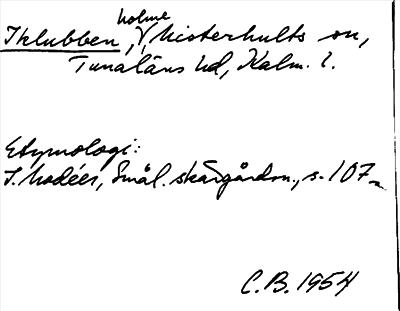 Iklubben, holme, Misterhults sn,
Tunaläns hd, Kalm. l.
Etymologi:
I. Modéer, Smål. skärgårdsn., s. 107.
C.B. 1954